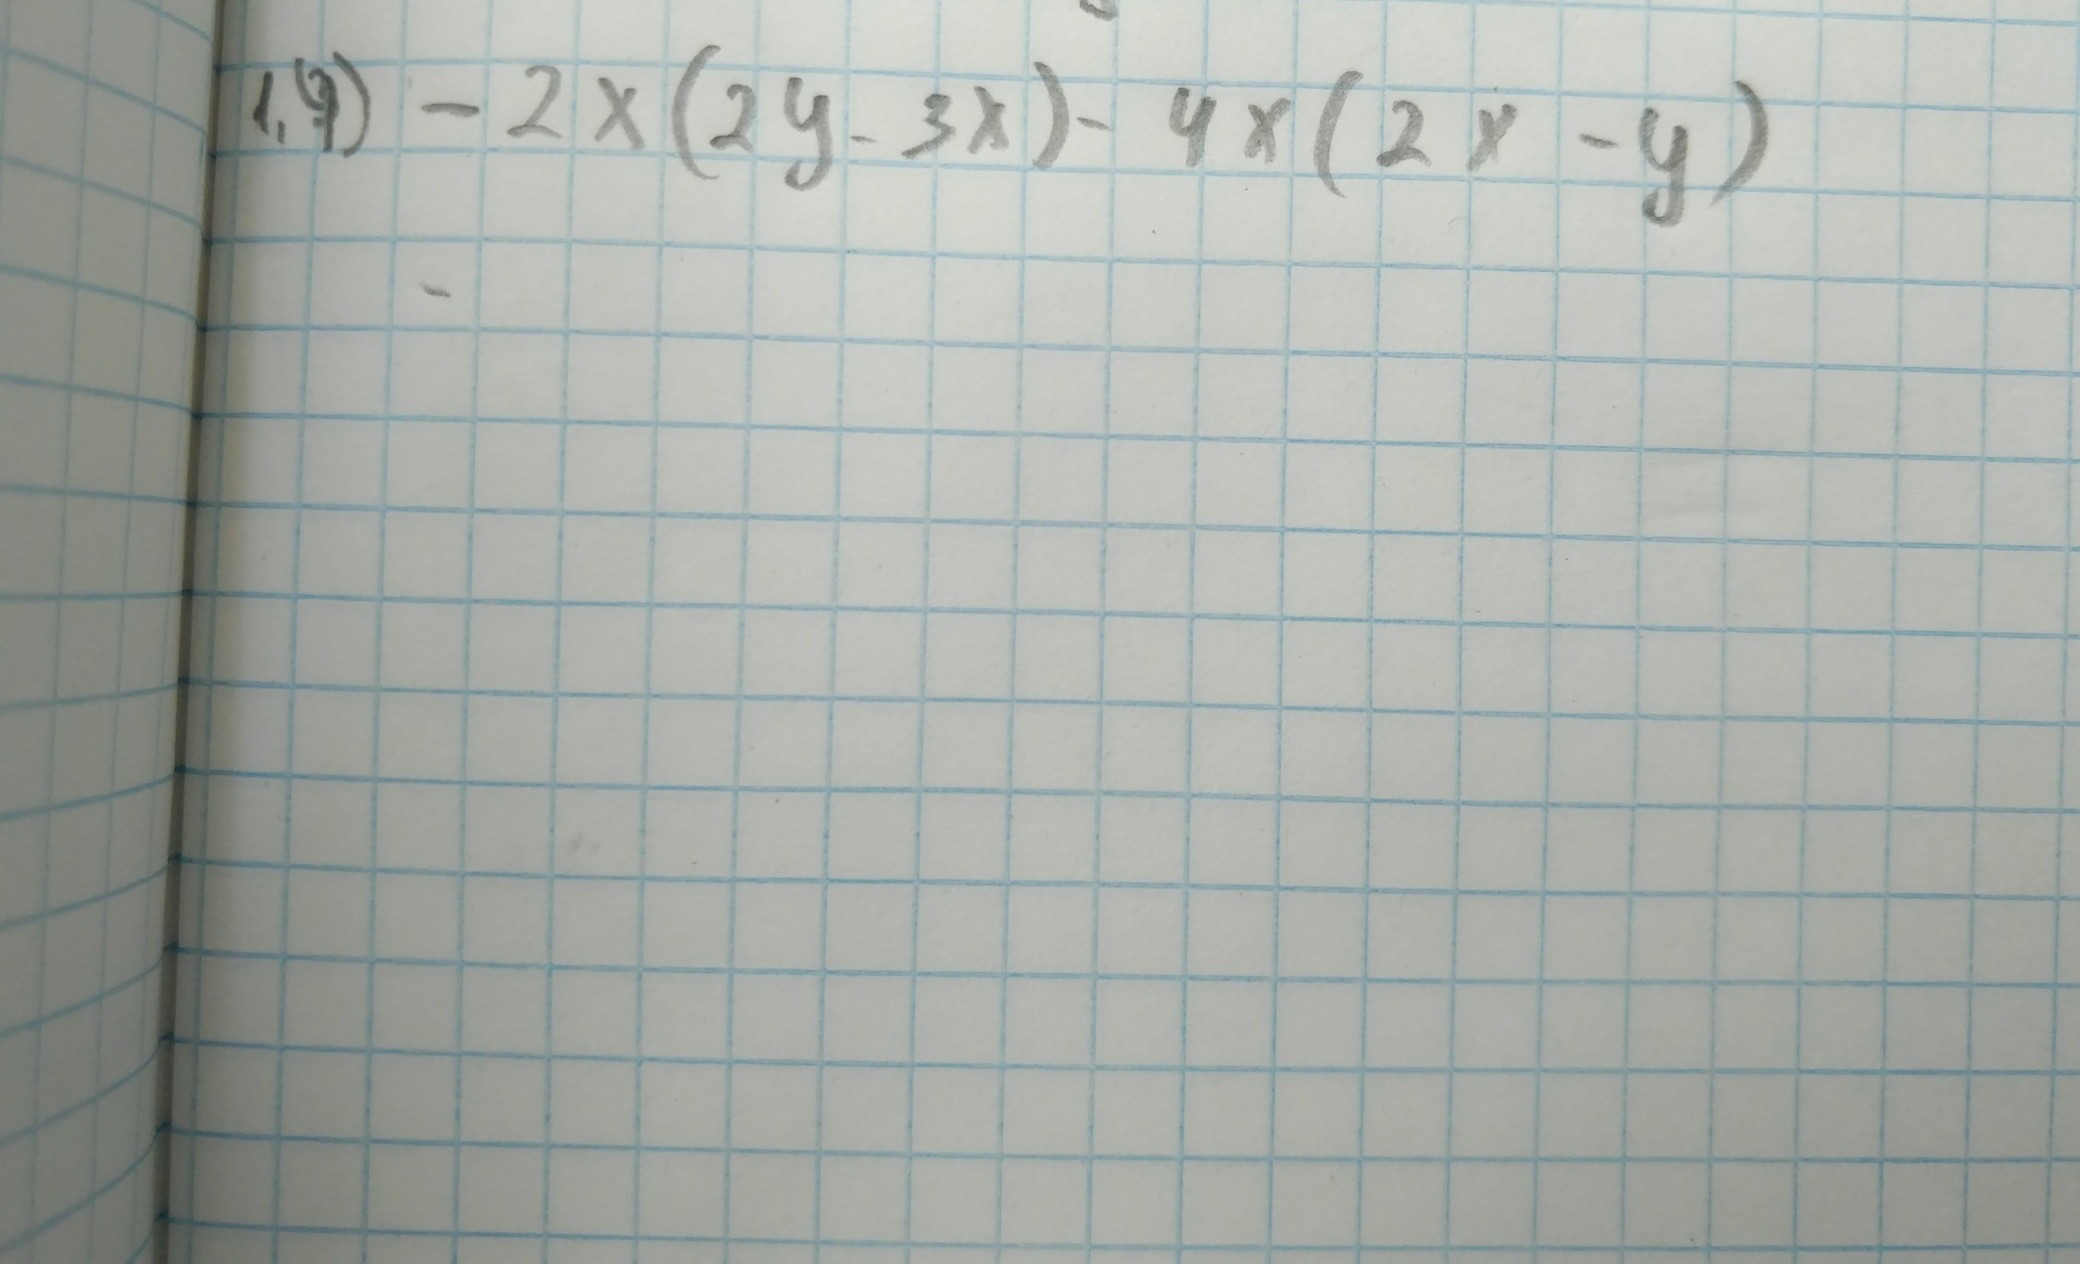 1,9) - 2x(2y - 3x) - 4x(2x - y)
-